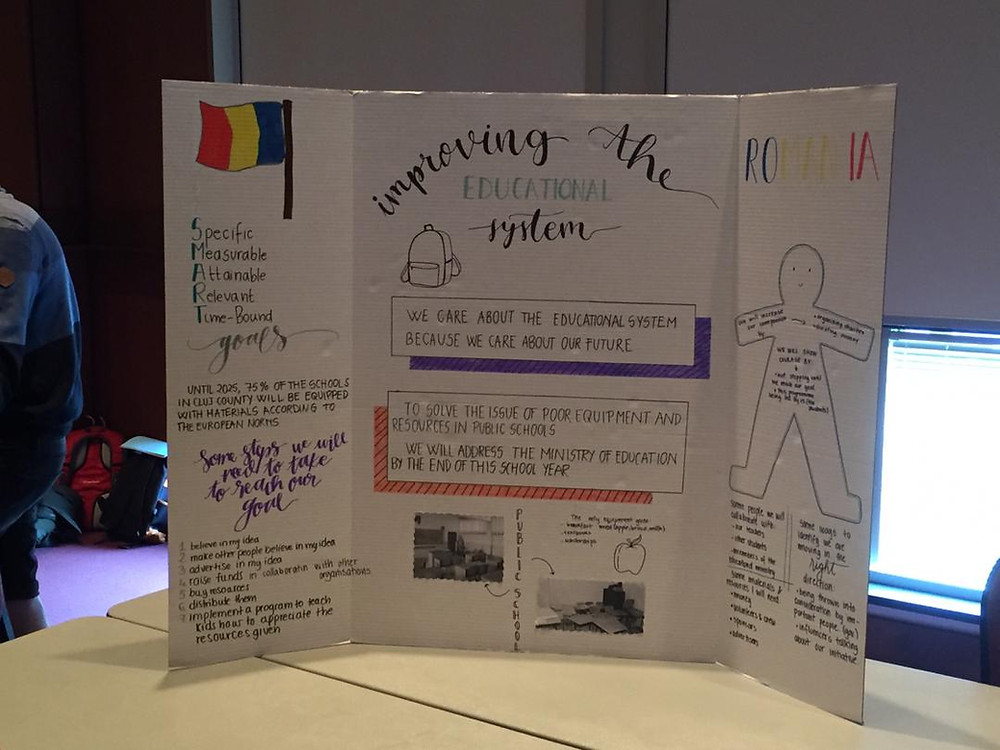 Specific
Measurable
Attainable
Relevant
Time-Bound
goals
UNTIL 2025, 75% OF THE SCHOOLS
IN CLUJ COUNTY WILL BE EQUIPPED
WITH MATERIALS ACCORDING TO
THE EUROPEAN NORMS
Some steps we will
need to take
to reach our
goal
1. believe in my idea
2. make other people believe in my idea
3. advertise in my idea
4. raise funds in collaboratin with other
organisations
5. buy resources
6. distribute them
7. implement a program to teach
kids how to appreciate the
resources given
improving the
EDUCATIONAL
system
WE CARE ABOUT THE EDUCATIONAL SYSTEM
BECAUSE WE CARE ABOUT OUR FUTURE
TO SOLVE THE ISSUE OF POOR EQUIPMENT AND
RESOURCES IN PUBLIC SCHOOLS
WE WILL ADDRESS THE MINISTRY OF EDUCATION
BY THE END OF THIS SCHOOL YEAR
PUBLIC SCHOOL
The only equipment given:
- textbooks
- scholarships
ROMANIA
We will increase
our compassion
by
• organising charities
WE WILL SHOW
COURAGE BY:
• not stopping until
we reach our goal
• this programme
being led by us (the
students)
Some people we will
collaborate with:
- our teachers
- other students
- members of the
educational ministry
Some materials &
resources I will need:
• money
• volunteers & crew
• sponsors
• advertisers
Some ways to
identify we are
moving in the
right
direction:
• being thrown into
consideration by im-
portant people (gov)
• influencers talking
about our initiative